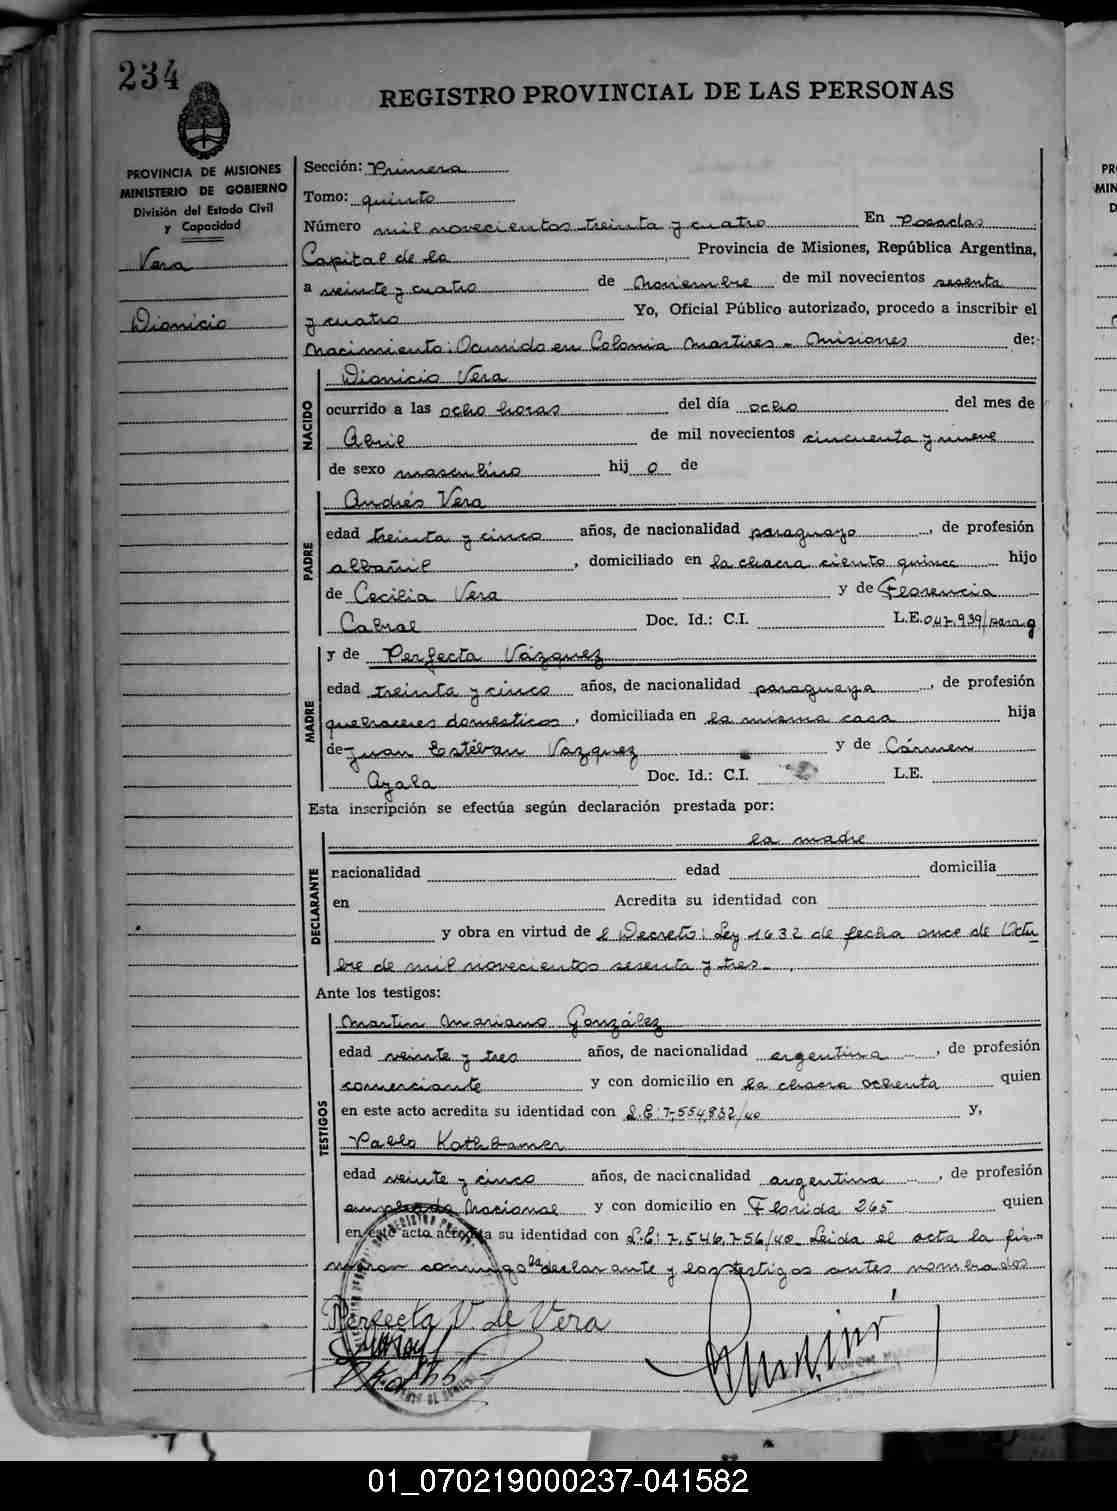 234
REGISTRO PROVINCIAL DE LAS PERSONAS
PROVINCIA DE MISIONES
MINISTERIO DE GOBIERNO
División del Estado Civil
y Capacidad
Vera
Dionicio
Sección: Primera
Tomo: quinto
Número mil novecientos treinta y cuatro En Posadas
Capital de la Provincia de Misiones, República Argentina,
a veinte y cuatro de Noviembre de mil novecientos sesenta
y cuatro Yo, Oficial Público autorizado, procedo a inscribir el
Nacimiento: Ocurrido en Colonia Martires - Misiones de:
NACIDO
Dionicio Vera
ocurrido a las ocho horas del día ocho del mes de
Abril de mil novecientos cincuenta y nueve
de sexo masculino hij o de
PADRE
Andrés Vera
edad treinta y cinco años, de nacionalidad paraguayo, de profesión
albañil, domiciliado en la chacra ciento quince hijo
de Cecilia Vera y de Florencia
Cabral Doc. Id.: C.I. L.E. 047.939/parag
MADRE
y de Perfecta Vázquez
edad treinta y cinco años, de nacionalidad paraguaya, de profesión
quehaceres domésticos, domiciliada en la misma casa hija
de Juan Estéban Vazquez y de Cármen
Ayala Doc. Id.: C.I. L.E.
Esta inscripción se efectúa según declaración prestada por:
DECLARANTE
la madre
nacionalidad edad domicilia
en Acredita su identidad con
y obra en virtud de l Decreto: Ley 1632 de fecha once de Octu
bre de mil novecientos sesenta y tres.
Ante los testigos:
TESTIGOS
Martin Mariano González
edad veinte y tres años, de nacionalidad argentina, de profesión
comerciante y con domicilio en la chacra ochenta quien
en este acto acredita su identidad con L.E: 7.554.832/40 y,
Pablo Kothbamer
edad veinte y cinco años, de nacionalidad argentina, de profesión
empleado Nacional y con domicilio en Florida 265 quien
en este acto acredita su identidad con L.E: 7.546.756/40 Leida el acta la fir-
maron conmigo la declarante y los testigos antes nombrados
Perfecta V. de Vera
01_070219000237-041582